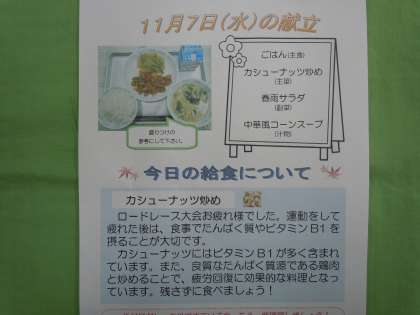 11月7日(水)の献立
ごはん(主食)
カシューナッツ炒め
(主菜)
春雨サラダ
(副菜)
中華風コーンスープ
(汁物)
盛りつけの
参考にして下さい。
今日の給食について
カシューナッツ炒め
ロードレース大会お疲れ様でした。運動をして
疲れた後は、食事でたんぱく質やビタミンB1を
摂ることが大切です。
カシューナッツにはビタミンB1が多く含まれ
ています。また、良質なたんぱく質源である鶏肉
と炒めることで、疲労回復に効果的な料理となっ
ています。残さずに食べましょう!